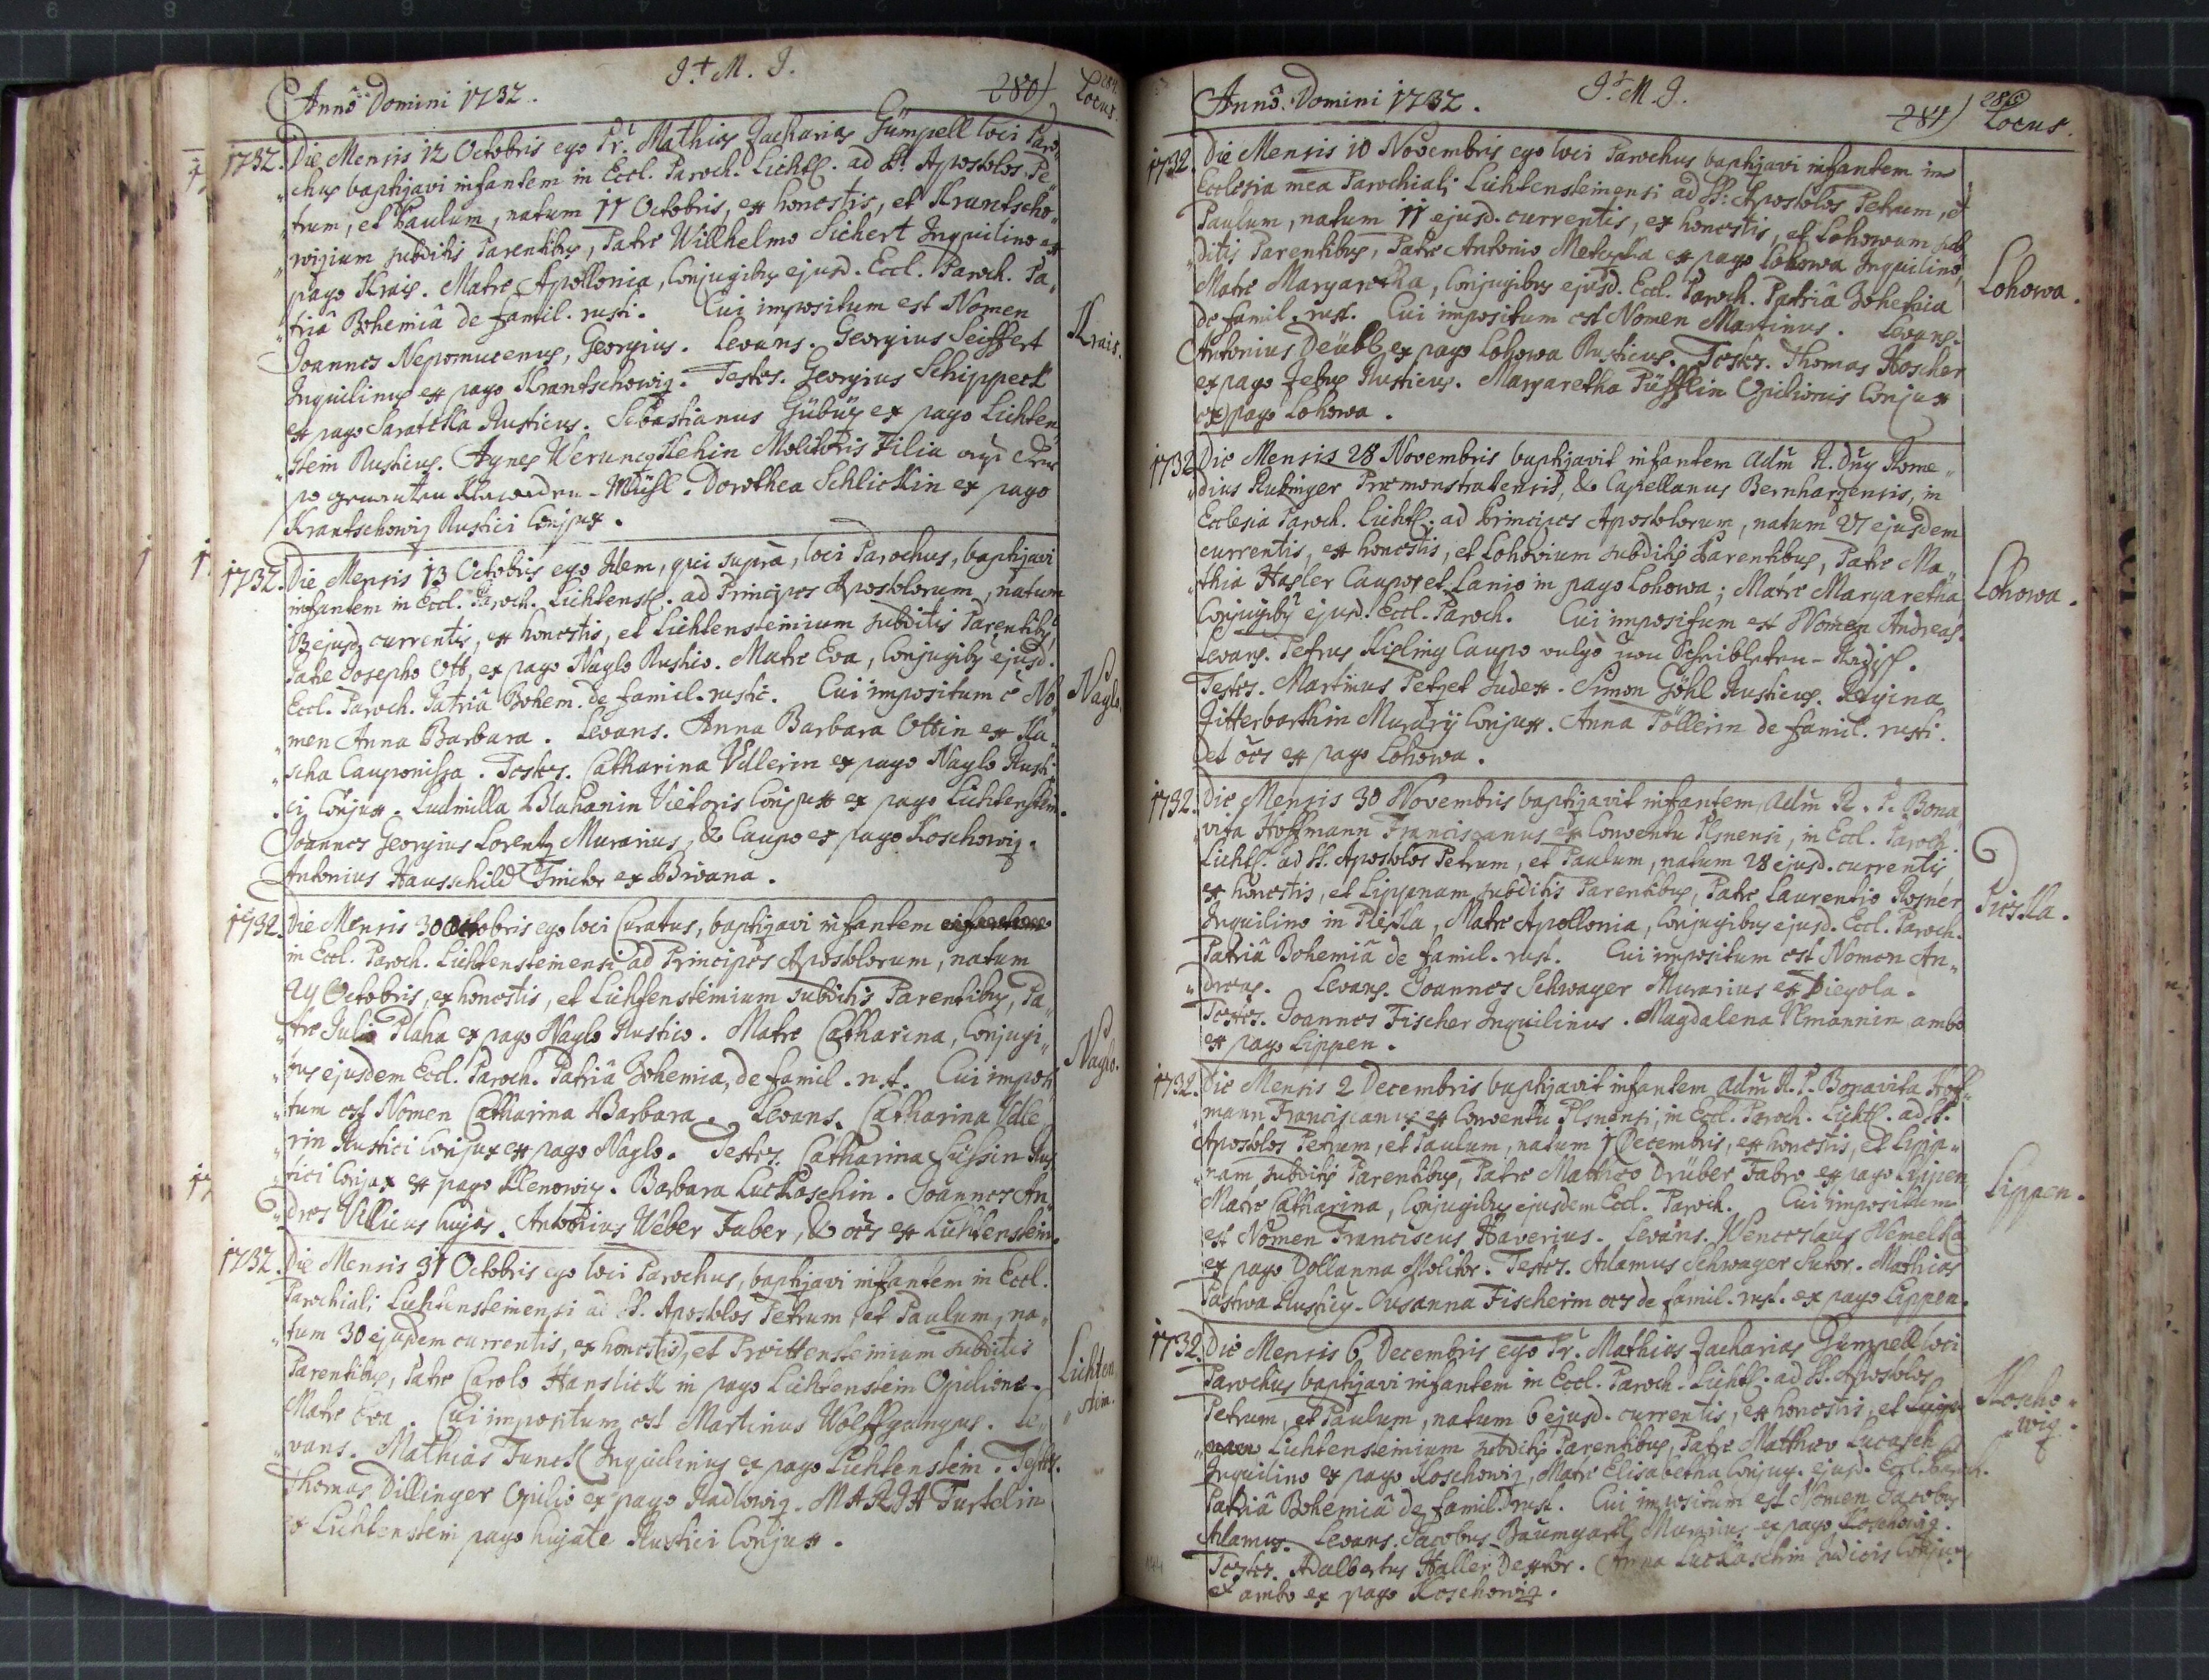 Anno Domini 1732. J. + M. J. 280) 284.
Locus.
1732. Die Mensis 12 Octobris ego Pr. Mathias Zacharias Gümpell loci Paro„
„chus baptizavi infantem in Eccl. Paroch. Lichtst. ad SS. Apostolos Pe„
„trum, et Paulum, natum 11 Octobris, ex honestis, et Krantscho„
„wizium subditis Parentibus, Patre Willhelmo Sichert Inquilino ex
pago Krais. Matre Apollonia, Conjugibus ejusd. Eccl. Paroch. Pa„
„triâ Bohemiâ de famil. rusti. Cui impositum est Nomen
Joannes Nepomucenus, Georgius. Levans. Georgius Seiffert
Inquilinus ex pago Krantschowiz. Testes. Georgius Schippeck
ex pago Saratèka Rusticus. Sebastianus Gübüz ex pago Lichten„
„stein Rusticus. Agnes Molitoris Filia
Mühl. Dorothea Schlickin ex pago
Krantschowiz Rustici Conjux.
Krais.
1732. Die Mensis 13 Octobris ego Idem, qui suprà, loci Parochus, baptizavi
infantem in Eccl. Paroch. Lichtenst. ad Principes Apostolorum, natum
13 ejusd. currentis, ex honestis, et Lichtensteinium subditis Parentibus,
Patre Josepho Ott, ex pago Naglo Rustico. Matre Eva, Conjugibus ejusd.
Eccl. Paroch. Patriâ Bohem. de famil. rustic. Cui impositum ê No„
„men Anna Barbara. Levans. Anna Barbara Ottin ex Ka„
„scha Cauponissa. Testes. Catharina Vdlerin ex pago Naglo Rusti„
„ci Conjux. Ludmilla Blahanin Vietoris Conjux ex pago Lichtenstein.
Joannes Georgius Lorentz Murarius, & Caupo ex pago Koschowiz.
Antonius Hausschild Tinctor ex Briwana.
Naglo.
1732. Die Mensis 30 Octobris ego loci Curatus, baptizavi infantem
in Eccl. Paroch. Lichtensteinensi ad Principes Apostolorum, natum
29 Octobris, ex honestis, et Lichtensteinium subditis Parentibus, Pa„
„tre Julio Plaha ex pago Naglo Rustico. Matre Catharina, Conjugi„
„bus ejusdem Eccl. Paroch. Patriâ Bohemia, de famil. r.st. Cui imposi„
„tum est Nomen Catharina Barbara. Levans. Catharina Vdle„
„rin Rustici Conjux ex pago Naglo. Testes. Catharina Süssin Rus„
„tici Conjux ex pago Klenowiz. Barbara Luckaschin. Joannes An„
„dres Villicus hujas. Antonius Weber Faber, & oes ex Lichtenstein.
Naglo.
1732. Die Mensis 31 Octobris ego loci Parochus, baptizavi infantem in Eccl.
Parochiali Lichtensteinensi ad SS. Apostolos Petrum et Paulum, na„
„tum 30 ejusdem currentis, ex honestis, et Preittensteinium subditis
Parentibus, Patre Carolo Hanslick in pago Lichtenstein Opilione.
Matre Eva. Cui impositum est Martinus Wolffgangus. Le„
„vans. Mathias Funck Inquilinus ex pago Lichtenstein. Testes.
Thomas Dillinger Opilio ex pago Radlowiz. MARIA Turtelin
ex Lichtenstein pago hujate Rustici Conjux.
Lichten„
„stein.
Anno Domini 1732. J. + M. J. 281) 286
Locus.
1732. Die Mensis 10 Novembris ego loci Parochus baptizavi infantem in
Ecclesia mea Parochiali Lichtensteinensi ad SS. Apostolos Petrum, et
Paulum, natum 11 ejusd. currentis, ex honestis, et Lohowam sub„
„ditis Parentibus, Patre Antonio Metuska ex pago Lohowa Inquilino,
Matre Margaretha, Conjugibus ejusd. Eccl. Paroch. Patriâ Bohemia
de famil. rust. Cui impositum est Nomen Martinus. Levans.
Antonius Deübl ex pago Lohowa Rusticus. Testes. Thomas Hoscher
ex pago Zebus Rusticus. Margaretha Püfflin Opilionis Conjux
ex pago Lohowa.
Lohowa.
1732. Die Mensis 28 Novembris baptizavit infantem Adm̃ R. Dn̄s Rome„
„dius Rubinger Praemonstratensis, & Capellanus Bernharzensis, in
Ecclesia Paroch. Lichtst. ad Principes Apostolorum, natum 27 ejusdem
currentis, ex honestis, et Lohovium subditis Parentibus, Patre Ma„
„thia Hasler Caupo et Lanio in pago Lohowa; Matre Margaretha
Conjugibus ejusd. Eccl. Paroch. Cui impositum est Nomen Andreas.
Levans. Petrus Kisling Caupo vulgò
Testes. Martinus Petzet Judex. Simon Göhl Rusticus. Regina
Zitterbarthin Murarij Conjux. Anna Pöllerin de famil. rusti.
et oes ex pago Lohowa.
Lohowa.
1732. Die Mensis 30 Novembris baptizavit infantem Adm̃ R. P. Bona„
„vita Hoffmann Franciscanus ex Conventu Plsnensi, in Eccl. Paroch.
Lichtst. ad SS. Apostolos Petrum, et Paulum, natum 28 ejusd. currentis,
ex honestis, et Lippenam subditis Parentibus, Patre Laurentio Rosner
Inquilino in Pieska, Matre Apollonia, Conjugibus ejusd. Eccl. Paroch.
Patriâ Bohemiâ de famil. rust. Cui impositum est Nomen An„
„dreas. Levans. Joannes Schwager Murarius ex Piegola.
Testes. Joannes Fischer Inquilinus. Magdalena Vlmannin ambo
ex pago Lippen.
Pieska.
1732. Die Mensis 2 Decembris baptizavit infantem Adm̃ R. P. Bonavita Hof„
„mann Franciscanus ex Conventu Plsnensi, in Eccl. Paroch. Lichtst. ad SS.
Apostolos Petrum, et Paulum, natum 1 Decembris, ex honestis, et Lippe„
„nam subditis Parentibus, Patre Matheo Drüber Fabro ex pago Lippen
Matre Catharina, Conjugibus ejusdem Eccl. Paroch. Cui impositum
est Nomen Franciscus Xaverius. Levans. Wenceslaus Nemelka
ex pago Dollanna Molitor. Testes. Adamus Schwager Sutor. Mathias
Pastwa Rusticus. Susanna Fischerin oes de famil. rust. ex pago Lippen.
Lippen.
1732. Die Mensis 6 Decembris ego Pr. Mathias Zacharias Gümpell loci
Parochus baptizavi infantem in Eccl. Paroch. Lichtst. ad SS. Apostolos
Petrum, et Paulum, natum 6 ejusd. currentis, ex honestis, et
Lichtensteinium subditis Parentibus, Patre Matthaeo Lucasch
Inquilino ex pago Koschowiz, Matre Elisabetha Conjug. ejusd. Eccl. Paroch.
Patriâ Bohemiâ de famil. rust. Cui impositum est Nomen Jacobus
Adamus. Levans. Jacobus Baumgartl Murarius ex pago Koschowiz.
Testes. Adalbertus Haller Textor. Anna Luckaschin Judicis Conjux
et ambo ex pago Koschowiz.
Koscho„
„wiz.